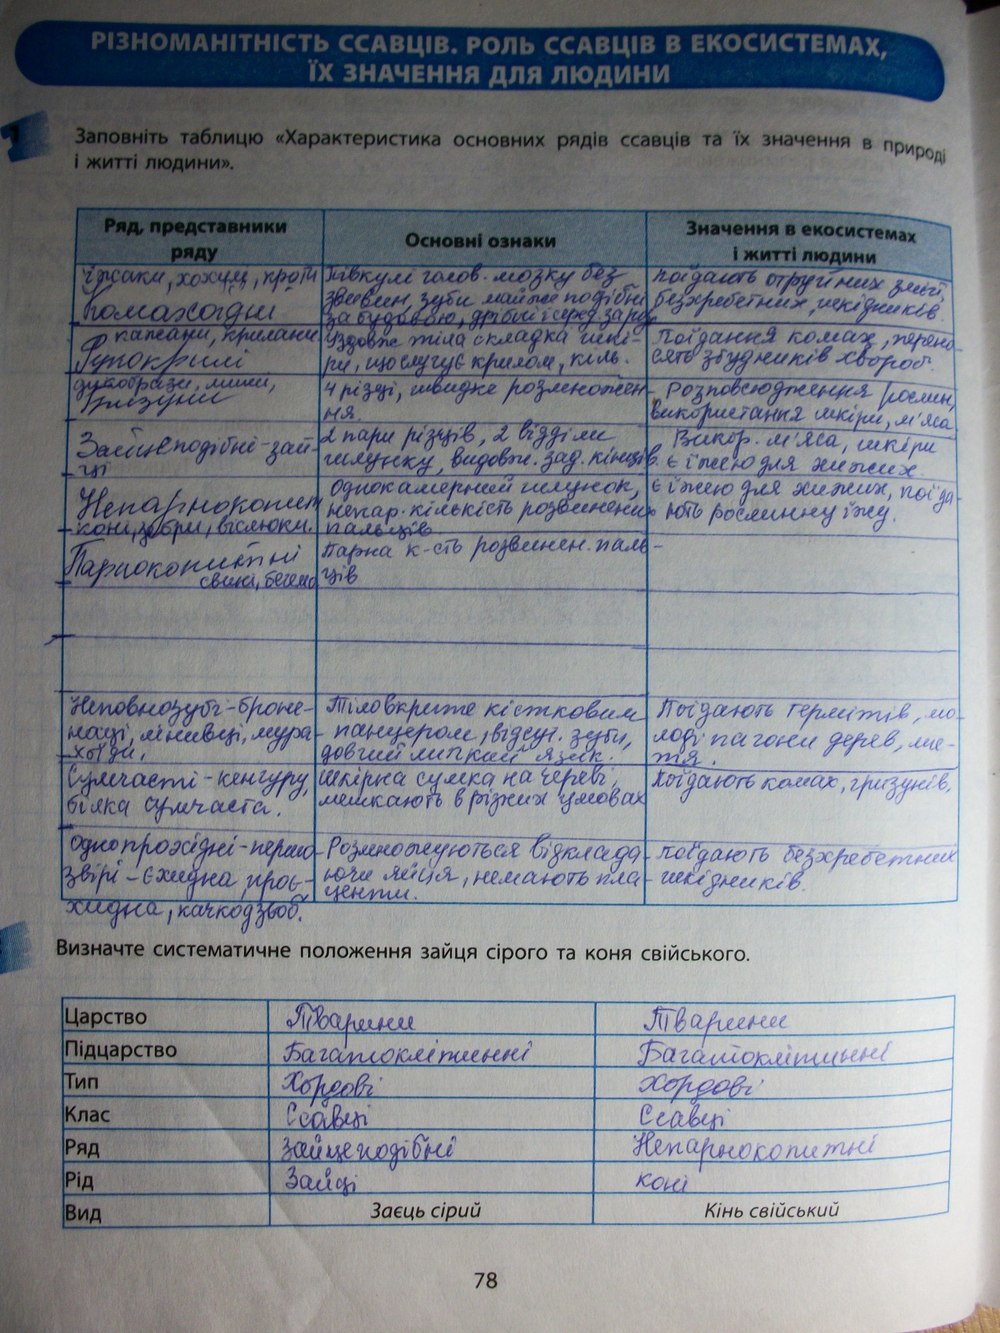 РІЗНОМАНІТНІСТЬ ССАВЦІВ. РОЛЬ ССАВЦІВ В ЕКОСИСТЕМАХ,
ЇХ ЗНАЧЕННЯ ДЛЯ ЛЮДИНИ
1
Заповніть таблицю «Характеристика основних рядів ссавців та їх значення в природі
і житті людини».
Ряд, представники
ряду
Основні ознаки
Значення в екосистемах
і житті людини
їжаки, хохулі, кроти
Комахоїдні
Півкулі голов. мозку без
звивин, зуби майже подібні
за будовою, дрібні і серед.
поїдають отруйних змій,
безхребетних, шкідників.
кажани, крилани
Рукокрилі
Уздовж тіла складка шкі-
ри, що слугує крилом, кіль.
Поїдання комах, перено-
сять збудників хвороб.
дикобрази, миші,
Гризуни
4 різці, швидке розмножен-
ня.
Розповсюдження рослин,
використання шкіри, м'яса
Зайцеподібні-зай-
ці
2 пари різців, 2 відділи
шлунку, видовж. зад. кінців.
Викор. м'яса, шкіри
є їжею для хижих.
Непарнокопит.
коні, зебри, віслюки.
Однокамерний шлунок,
непар. кількість розвинених
пальців
є їжею для хижих, поїда-
ють рослинну їжу.
Парнокопитні
свині, бегемо
Парна к-сть розвинен. паль-
ців
Неповнозубі-броне-
носці, лінивці, мура-
хоїди.
Тіло вкрите кістковим
панцером, відсут. зуби,
довгий липкий язик.
Поїдають термітів, мо-
лоді пагони дерев, лис-
тя.
Сумчасті-кенгуру,
білка сумчаста.
Шкірна сумка на череві,
мешкають в різних умовах
Поїдають комах, гризунів.
Однопрохідні-першо-
звірі-єхидна, прое-
хидна, качкодзьоб.
Розмножуються відклада-
ючи яйця, немають пла-
центи.
Поїдають безхребетних
шкідників.
Визначте систематичне положення зайця сірого та коня свійського.
Царство Тварини Тварини
Підцарство Багатоклітинні Багатоклітинні
Тип Хордові Хордові
Клас Ссавці Ссавці
Ряд Зайцеподібні Непарнокопитні
Рід Зайці коні
Вид Заєць сірий Кінь свійський
78